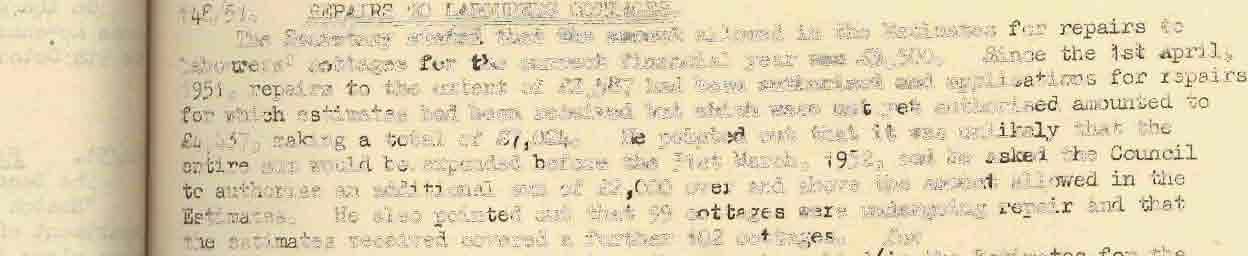 148/51. REPAIRS TO LABOURERS COTTAGES.
The Secretary stated that the amount allowed in the Estimates for repairs to
labourers' cottages for the current financial year was £3,500. Since the 1st April,
1951, repairs to the extent of had been authorised and applications for repairs
for which estimates had been received but which were not yet authorised amounted to
making a total of £7,024. He pointed out that it was unlikely that the
entire sum would be expended before the 31st March, 1952, and he asked the Council
to authorise an additional sum of £2,000 over and above the amount allowed in the
Estimates. He also pointed out that 99 cottages were undergoing repair and that
the estimates received covered a further 102 cottages.
in the Estimates for the